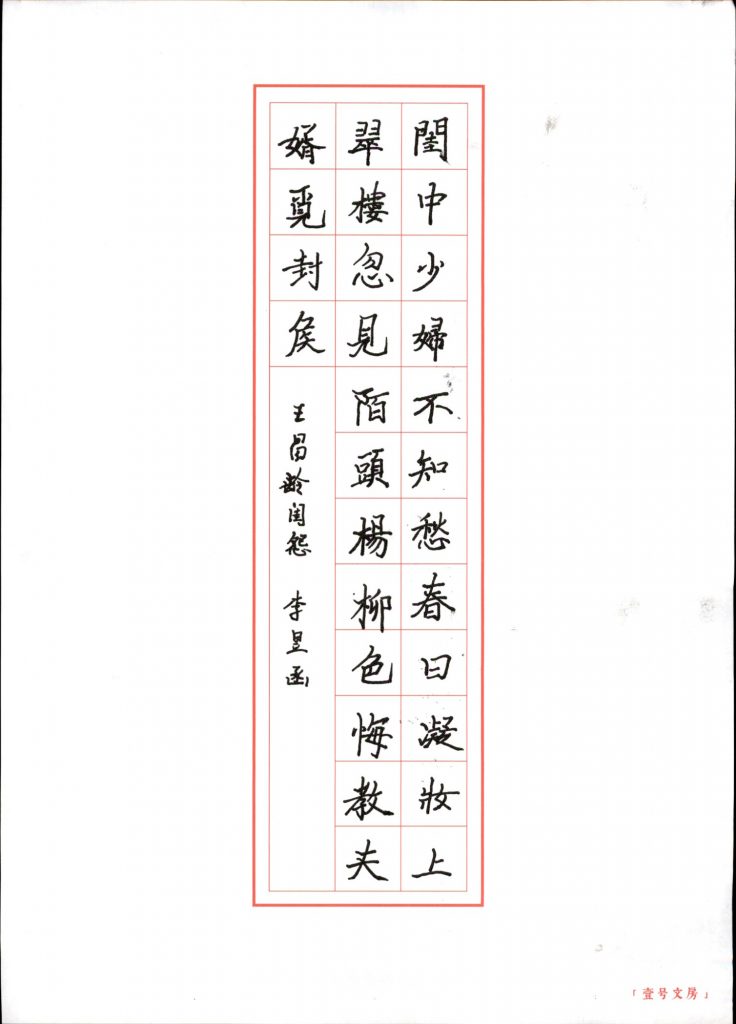 閨中少婦不知愁春日凝妝上
翠樓忽見陌頭楊柳色悔教夫
婿覓封侯
王昌齡閨怨 李昱函
「壹号文房」